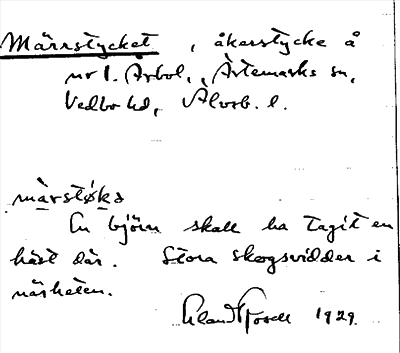 Märrstycket, åkerstycke å
nr 1. Årbol, Ärtemarks sn,
Vedbo hd, Älvsb. l.
märstøka
En björn skall ha tagit en
häst där. Stora skogsvidder i
närheten.
1929.